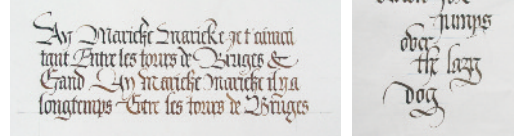 Ay Marieke Marieke je t'aimai
tant Entre les tours de Bruges &
Gand Ay Marieke Marieke il y a
longtemps Entre les tours de Bruges
jumps
over
the lazy
dog